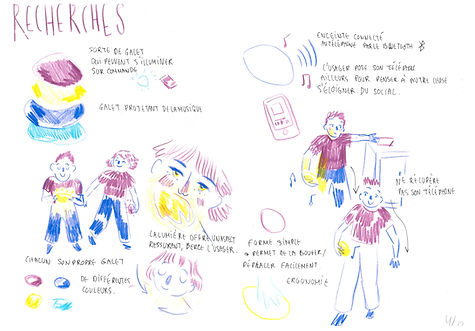 RECHERCHES
SORTE DE GALET
QUI PEUVENT S'ILLUMINER
SUR COMMANDE
GALET PROJETANT DE LA MUSIQUE
CHACUN SON PROPRE GALET
DE DIFFÉRENTES
COULEURS.
LA LUMIÈRE OFFRE UN ASPECT
RESSURANT, BERCE L'USAGER.
ENCEINTE CONNECTÉ
AU TÉLÉPHONE PAR LE BLUETOOTH
L'USAGER POSE SON TÉLÉPHONE
AILLEURS POUR PENSER À AUTRE CHOSE
S'ÉLOIGNER DU SOCIAL.
NE RÉCUPÈRE
PAS SON TÉLÉPHONE.
FORME SIMPLE
PERMET DE LA BOUGER/
DÉPLACER FACILEMENT
ERGONOMIE